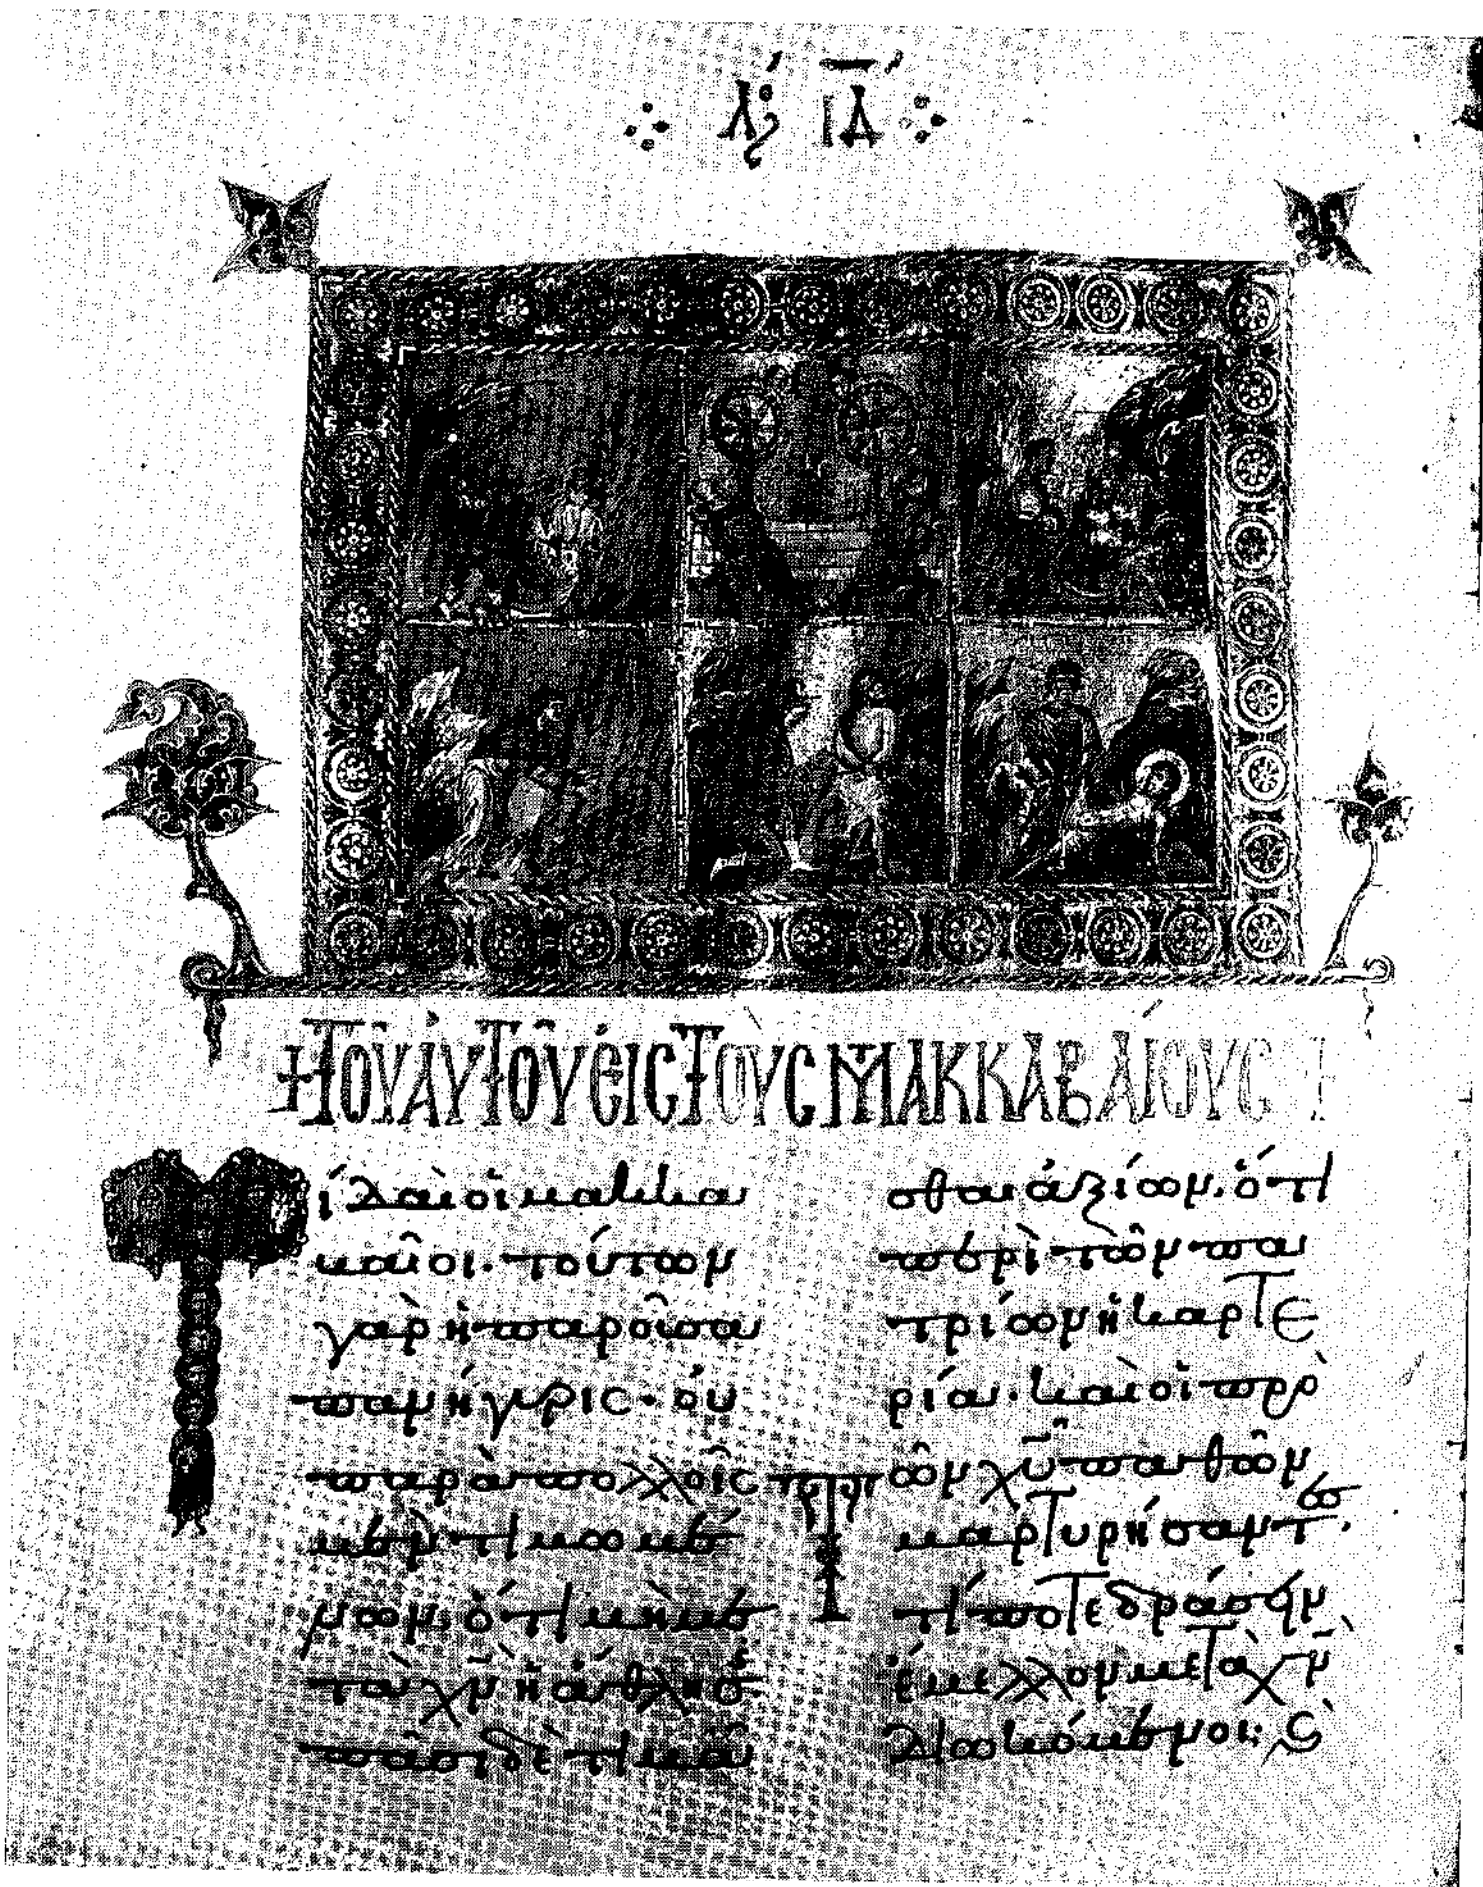 Λόγ ΙΔ
+ ΤΟΥ ΑΥΤΟΥ ΕΙC ΤΟΥC ΜΑΚΚΑΒΑΙΟΥC
Τί δαὶ οἱ μακκα
βαῖοι· τούτων
γὰρ ἡ παροῦσα
πανήγυρις· οὐ
παρὰ πολλοῖς
μὲν τιμωμέ
νων, ὅτι μὴ με
τὰ χ̅ν̅ ἡ ἄθλησις
πᾶσι δὲ τιμᾶ
σθαι ἀξίων, ὅτι
περὶ τῶν πα
τρίων ἡ καρτε
ρία· καὶ οἱ πρὸ
τῶν χ̅υ̅ παθῶν
μαρτυρήσαντες,
τί ποτε δράσειν
ἔμελλον μετὰ χ̅ν̅
διωκόμενοι; ϛ